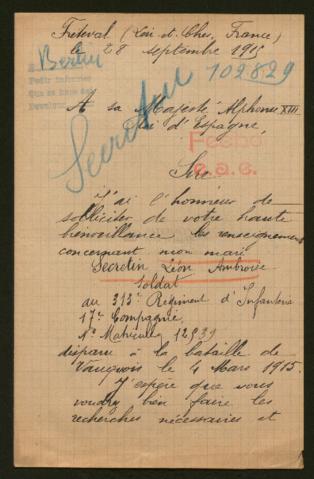 Fréteval (Loir-et-Cher, France)
le 28 septembre 1915
Berlin
102.829
Secretin
A sa Majesté Alphonse XIII
Roi d'Espagne,
Fecho
Sire
J'ai l'honneur de
solliciter de votre haute
bienveillance les renseignements
concernant mon mari
Secretin Léon Ambroise
Soldat
au 313e Régiment d'Infanterie
17e Compagnie
No Matricule 12539
disparu à la bataille de
Vauquois le 4 Mars 1915.
J'espère que vous
voudrez bien faire les
recherches nécessaires et